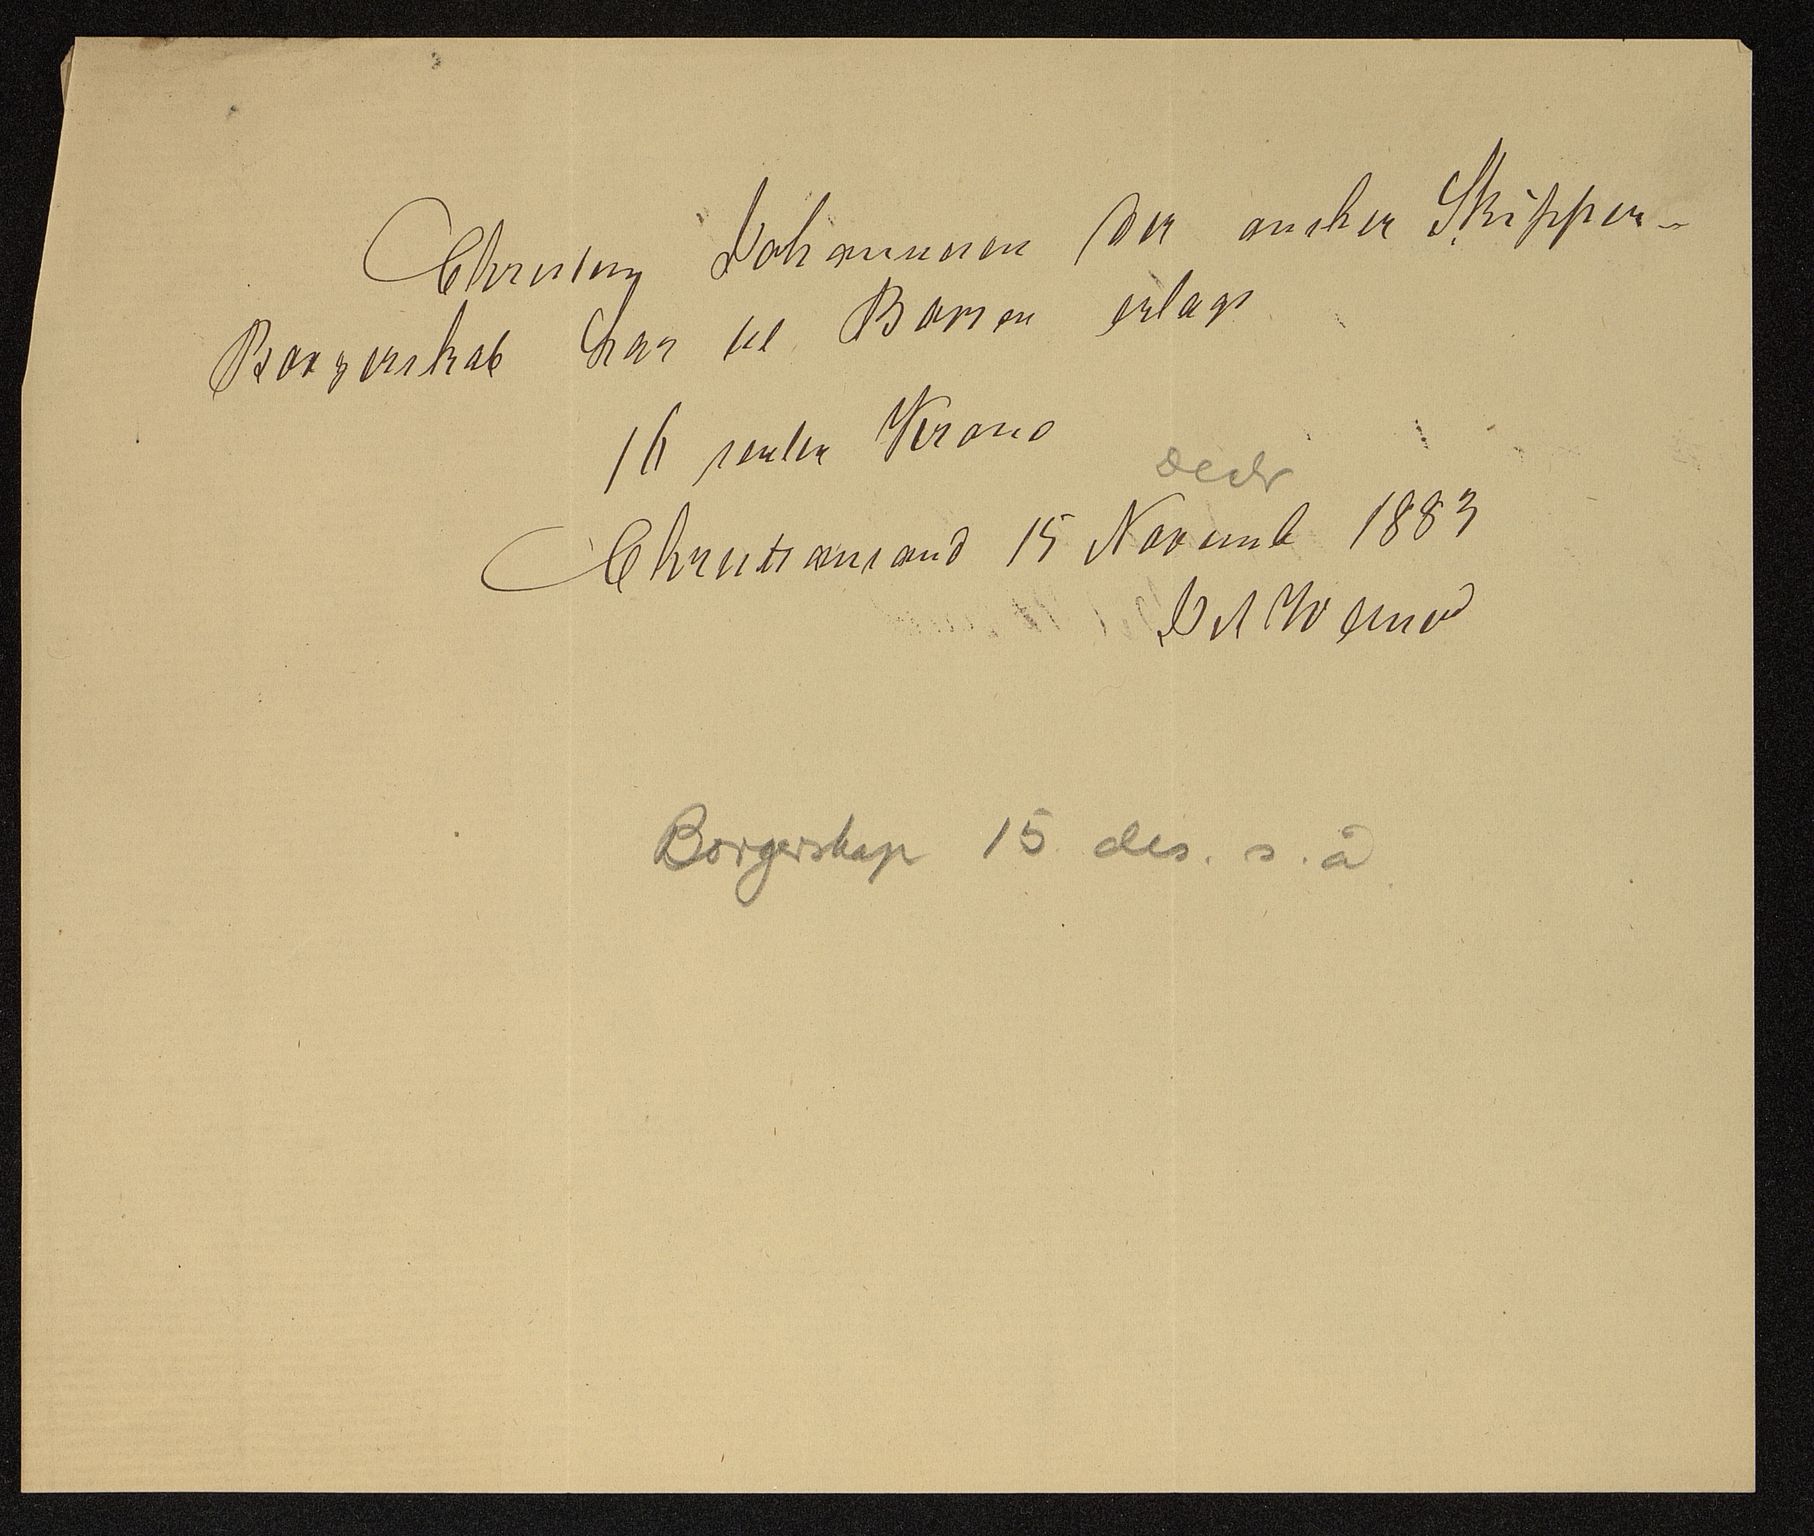 Christen Johannesen der ønsker Skipper-
Borgerskab har til Børsen erlagt
16 sexten Kroner
decbr
Christianssand 15 Novemb 1883
Borgerskap 15 des. s. å